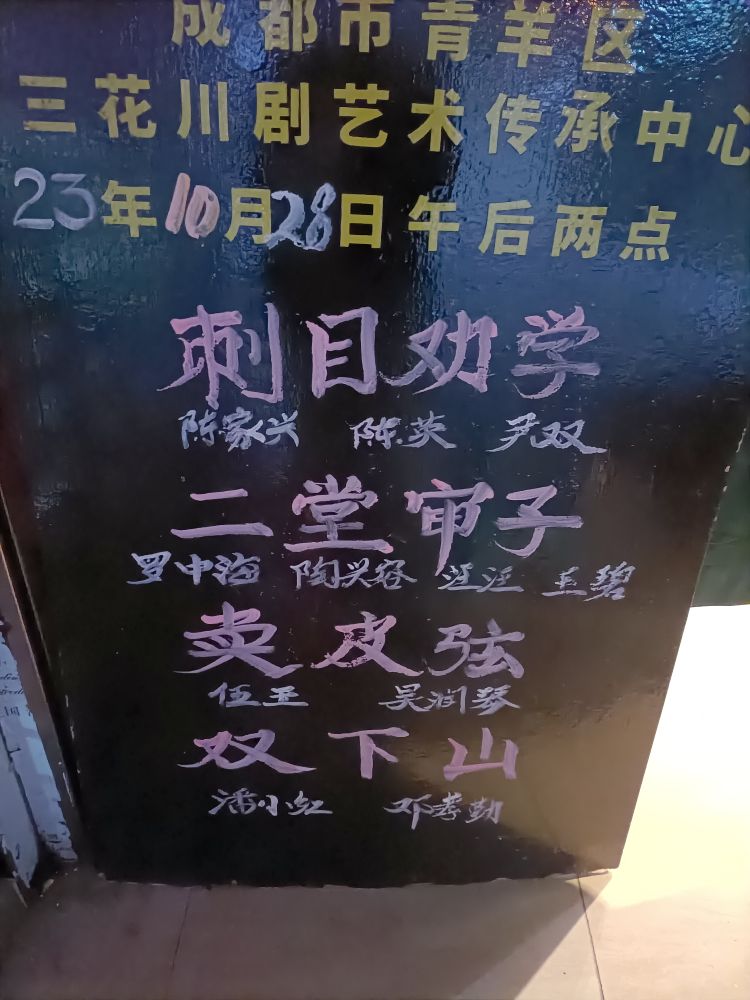 成都市青羊区
三花川剧艺术传承中心
23年10月28日午后两点
刺目劝学
陈家兴 陈英 尹双
二堂审子
罗中海 陶兴容 汪汪 王碧
卖皮弦
伍王 吴润琴
双下山
潘小红 邓孝勤